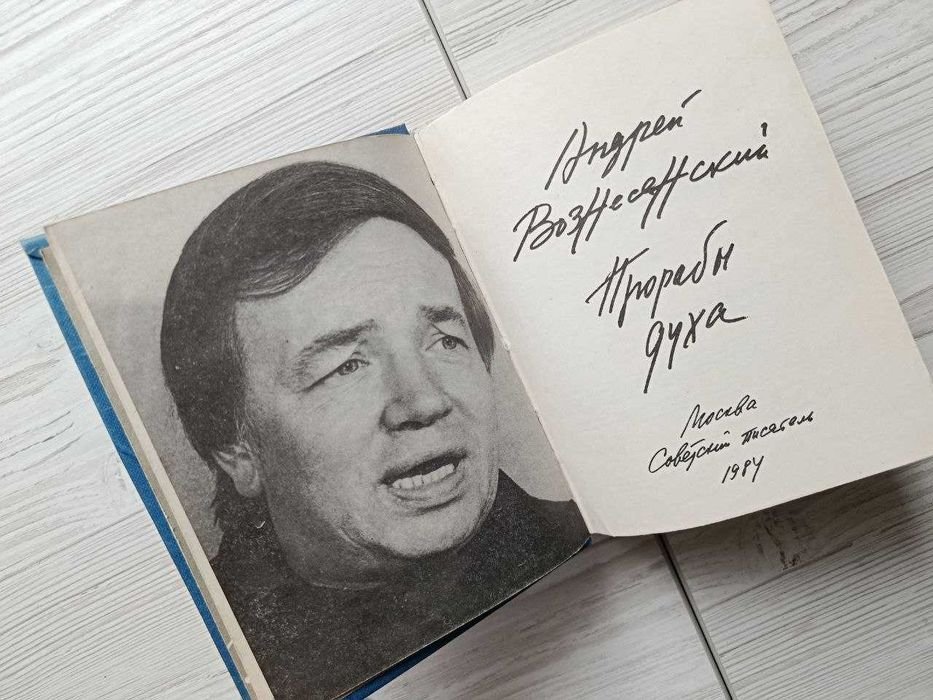 Андрей
Вознесенский
Прорабы
духа
Москва
Советский писатель
1984